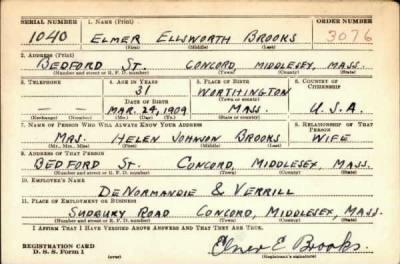 SERIAL NUMBER 1. NAME (Print) ORDER NUMBER
1040 ELMER ELLSWORTH BROOKS 3076
(First) (Middle) (Last)
2. ADDRESS (Print)
BEDFORD ST. CONCORD, MIDDLESEX, MASS.
(Number and street or R. F. D. number) (Town) (County) (State)
3. TELEPHONE 4. AGE IN YEARS 5. PLACE OF BIRTH 6. COUNTRY OF CITIZENSHIP
31 WORTHINGTON
DATE OF BIRTH (Town or county)
— MAR. 29, 1909 MASS. U.S.A.
(Exchange) (Number) (Mo.) (Day) (Yr.) (State or country)
7. NAME OF PERSON WHO WILL ALWAYS KNOW YOUR ADDRESS 8. RELATIONSHIP OF THAT PERSON
MRS. HELEN JOHNSON BROOKS WIFE
(Mr., Mrs., Miss) (First) (Middle) (Last)
9. ADDRESS OF THAT PERSON
BEDFORD ST. CONCORD, MIDDLESEX, MASS.
(Number and street or R. F. D. number) (Town) (County) (State)
10. EMPLOYER'S NAME
DENORMANDIE & VERRILL
11. PLACE OF EMPLOYMENT OR BUSINESS
SUDBURY ROAD CONCORD, MIDDLESEX, MASS.
(Number and street or R. F. D. number) (Town) (County) (State)
I AFFIRM THAT I HAVE VERIFIED ABOVE ANSWERS AND THAT THEY ARE TRUE.
REGISTRATION CARD
D. S. S. Form 1 Elmer E Brooks.
(over) (Registrant's signature)